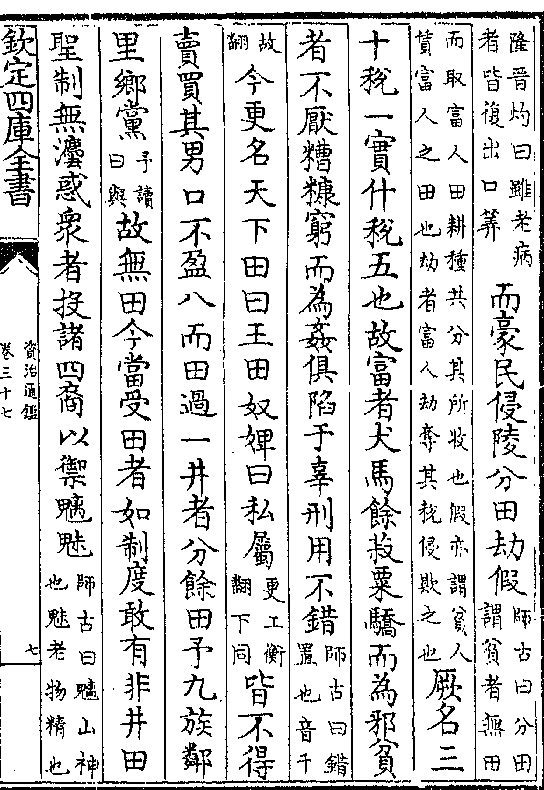 隆晉灼曰雖老病者皆復出口筭而豪民侵陵分田劫假師古曰分田謂貧者無田
而取富人田耕種共分其所收也假亦謂貧人賃富人之田也劫者富人劫奪其稅侵欺之也厥名三
十稅一實什稅五也故富者犬馬餘菽粟驕而為邪貧
者不厭糟糠窮而為姦俱陷于辜刑用不錯師古曰錯置也音千
故翻今更名天下田曰王田奴婢曰私屬更工衡翻下同皆不得
賣買其男口不盈八而田過一井者分餘田予九族鄰
里鄉黨予讀曰與故無田今當受田者如制度敢有非井田
聖制無灋惑衆者投諸四裔以禦魑魅師古曰魑山神也魅老物精也
欽定四庫全書
資治通鑑
卷三十七
七